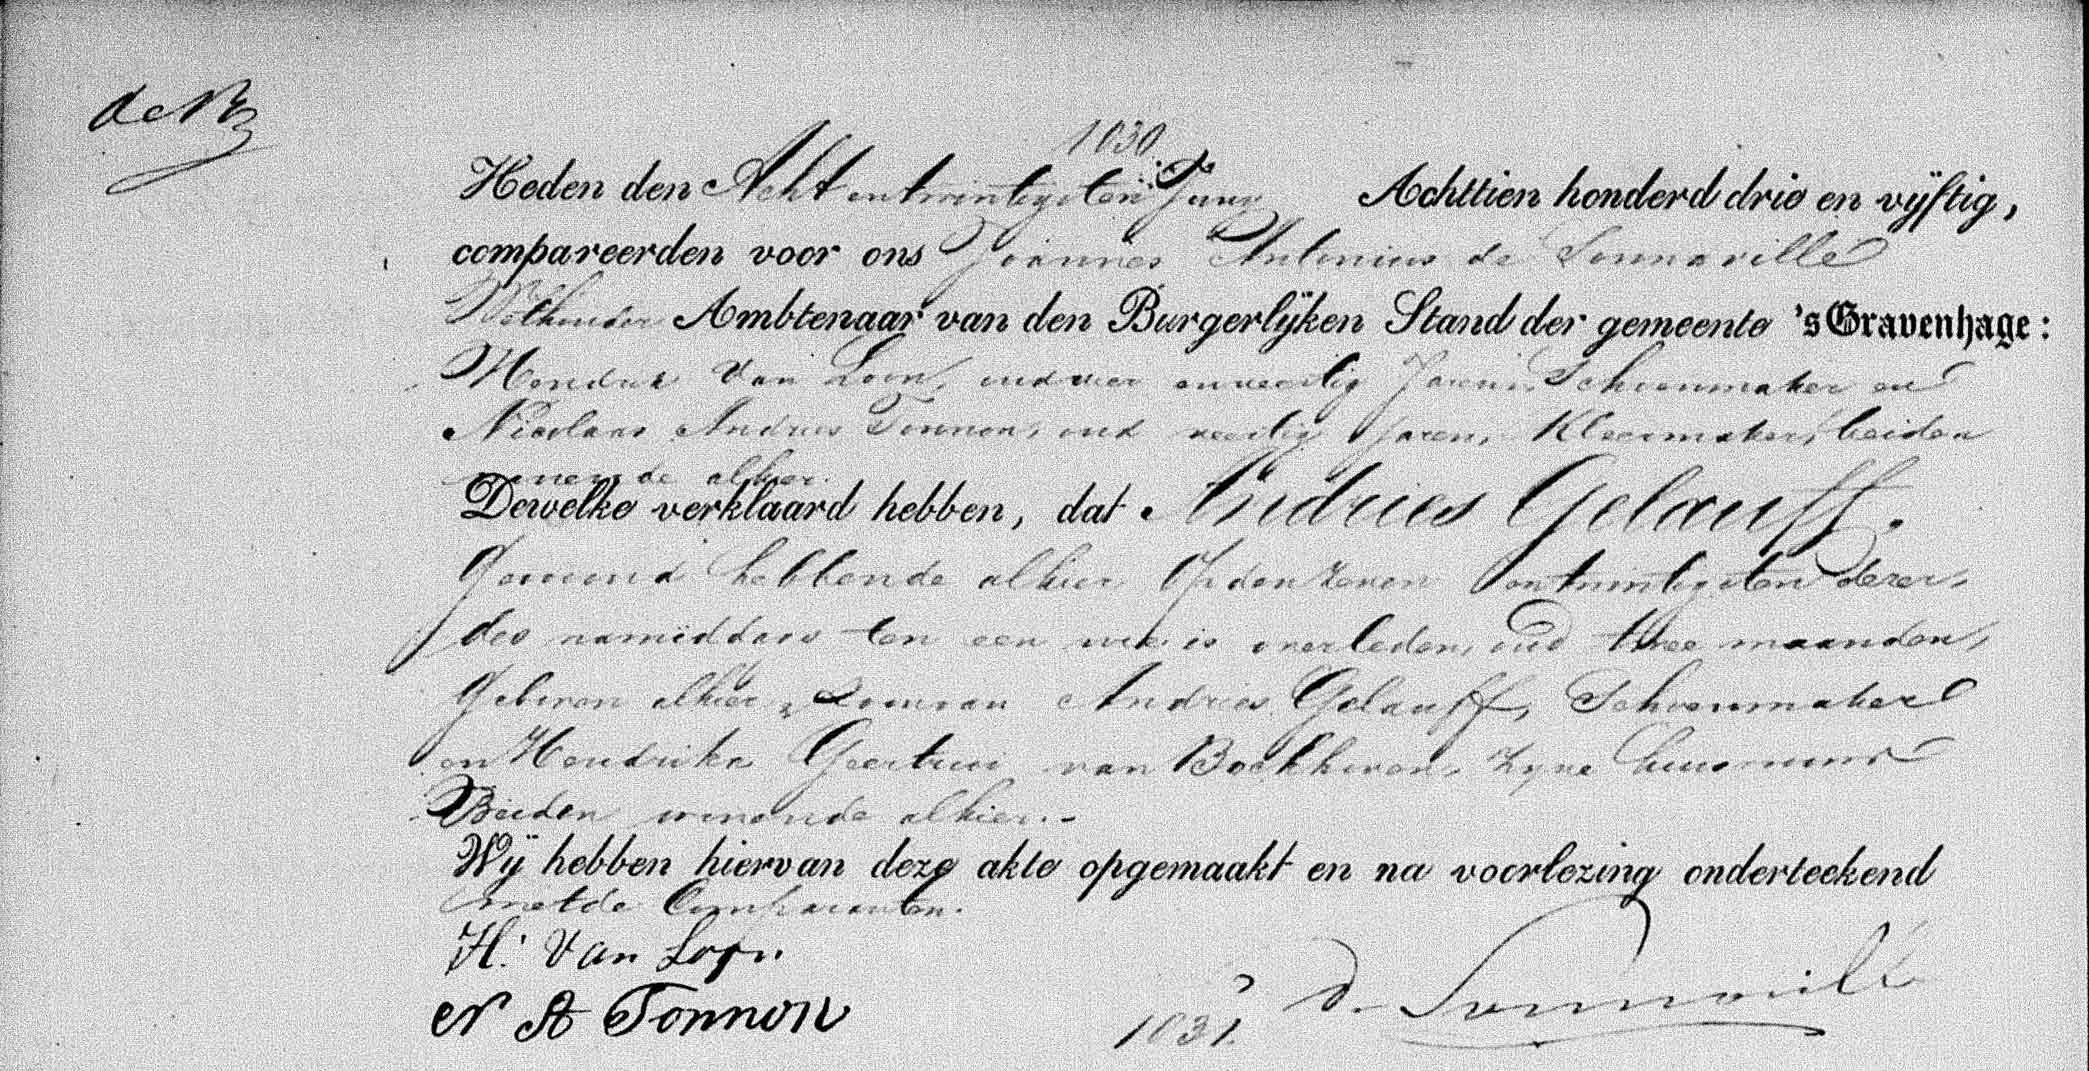 1030
Heden den Acht en twintigsten Juny Achttien honderd drie en vijftig,
compareerden voor ons Joannes Antonius de Sonnaville
Wethouder Ambtenaar van den Burgerlijken Stand der gemeente 's Gravenhage:
Hendrik van Loon, oud vier en veertig Jaren, Schoenmaker en
Nicolaas Andries Tonnon, oud veertig Jaren, Kleermaker, beiden
wonende alhier.
Dewelke verklaard hebben, dat Andries Gelauff.
Gewoond hebbende alhier Op den zeven en twintigsten dezer,
des namiddags ten een ure is overleden, oud twee maanden,
Geboren alhier, Zoon van Andries Gelauff, Schoenmaker
en Hendrika Geertrui van Bockhoven, zyne huisvrouw
Beiden wonende alhier.-
Wij hebben hiervan deze akte opgemaakt en na voorlezing onderteekend
met de Comparanten.
H. van Loon
N A Tonnon
d. Sonnaville
1031.